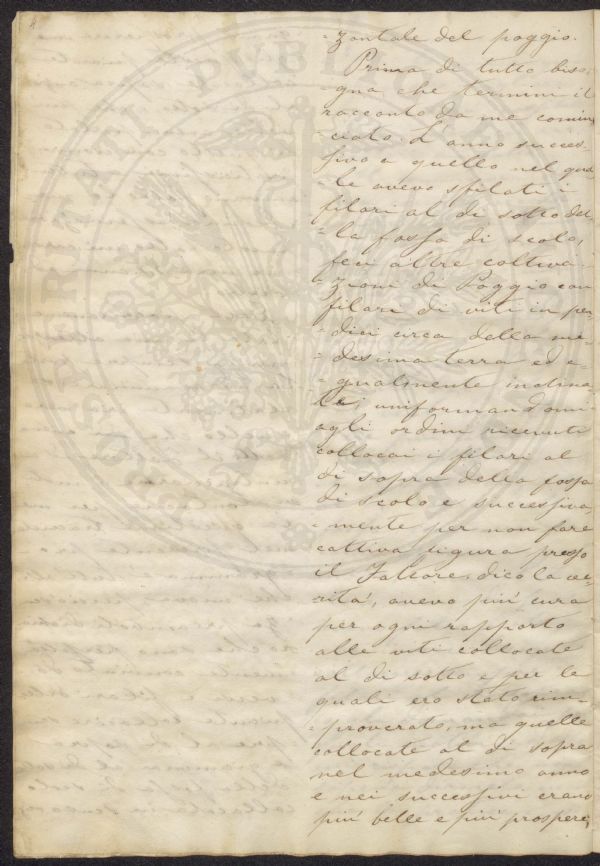 4
=zontale del poggio.
Prima di tutto biso,
gna che termini il
racconto da me comin,
=ciato. L'anno succes,
sivo a quello nel qua
=le avevo sfilati i
filari al di sotto del,
=la fossa di scolo,
feci altre coltiva,
=zioni di Poggio con
filari di viti in pen,
=dici circa della me,
=desima terra ed e,
=gualmente inclina,
te; uniformandomi
agli ordini ricevuti
collocai i filari al
di sopra della fossa
di scolo e successiva,
=mente per non fare
cattiva figura presso
il Fattore, dico la ve,
rità, avevo più cura
per ogni rapporto
alle viti collocate
al di sotto e per le
quali ero stato rim,
=proverato, ma quelle
collocate al di sopra
nel medesimo anno
e nei successivi erano
più belle e più prospere,
PUBLICAE
PROSPERITATI